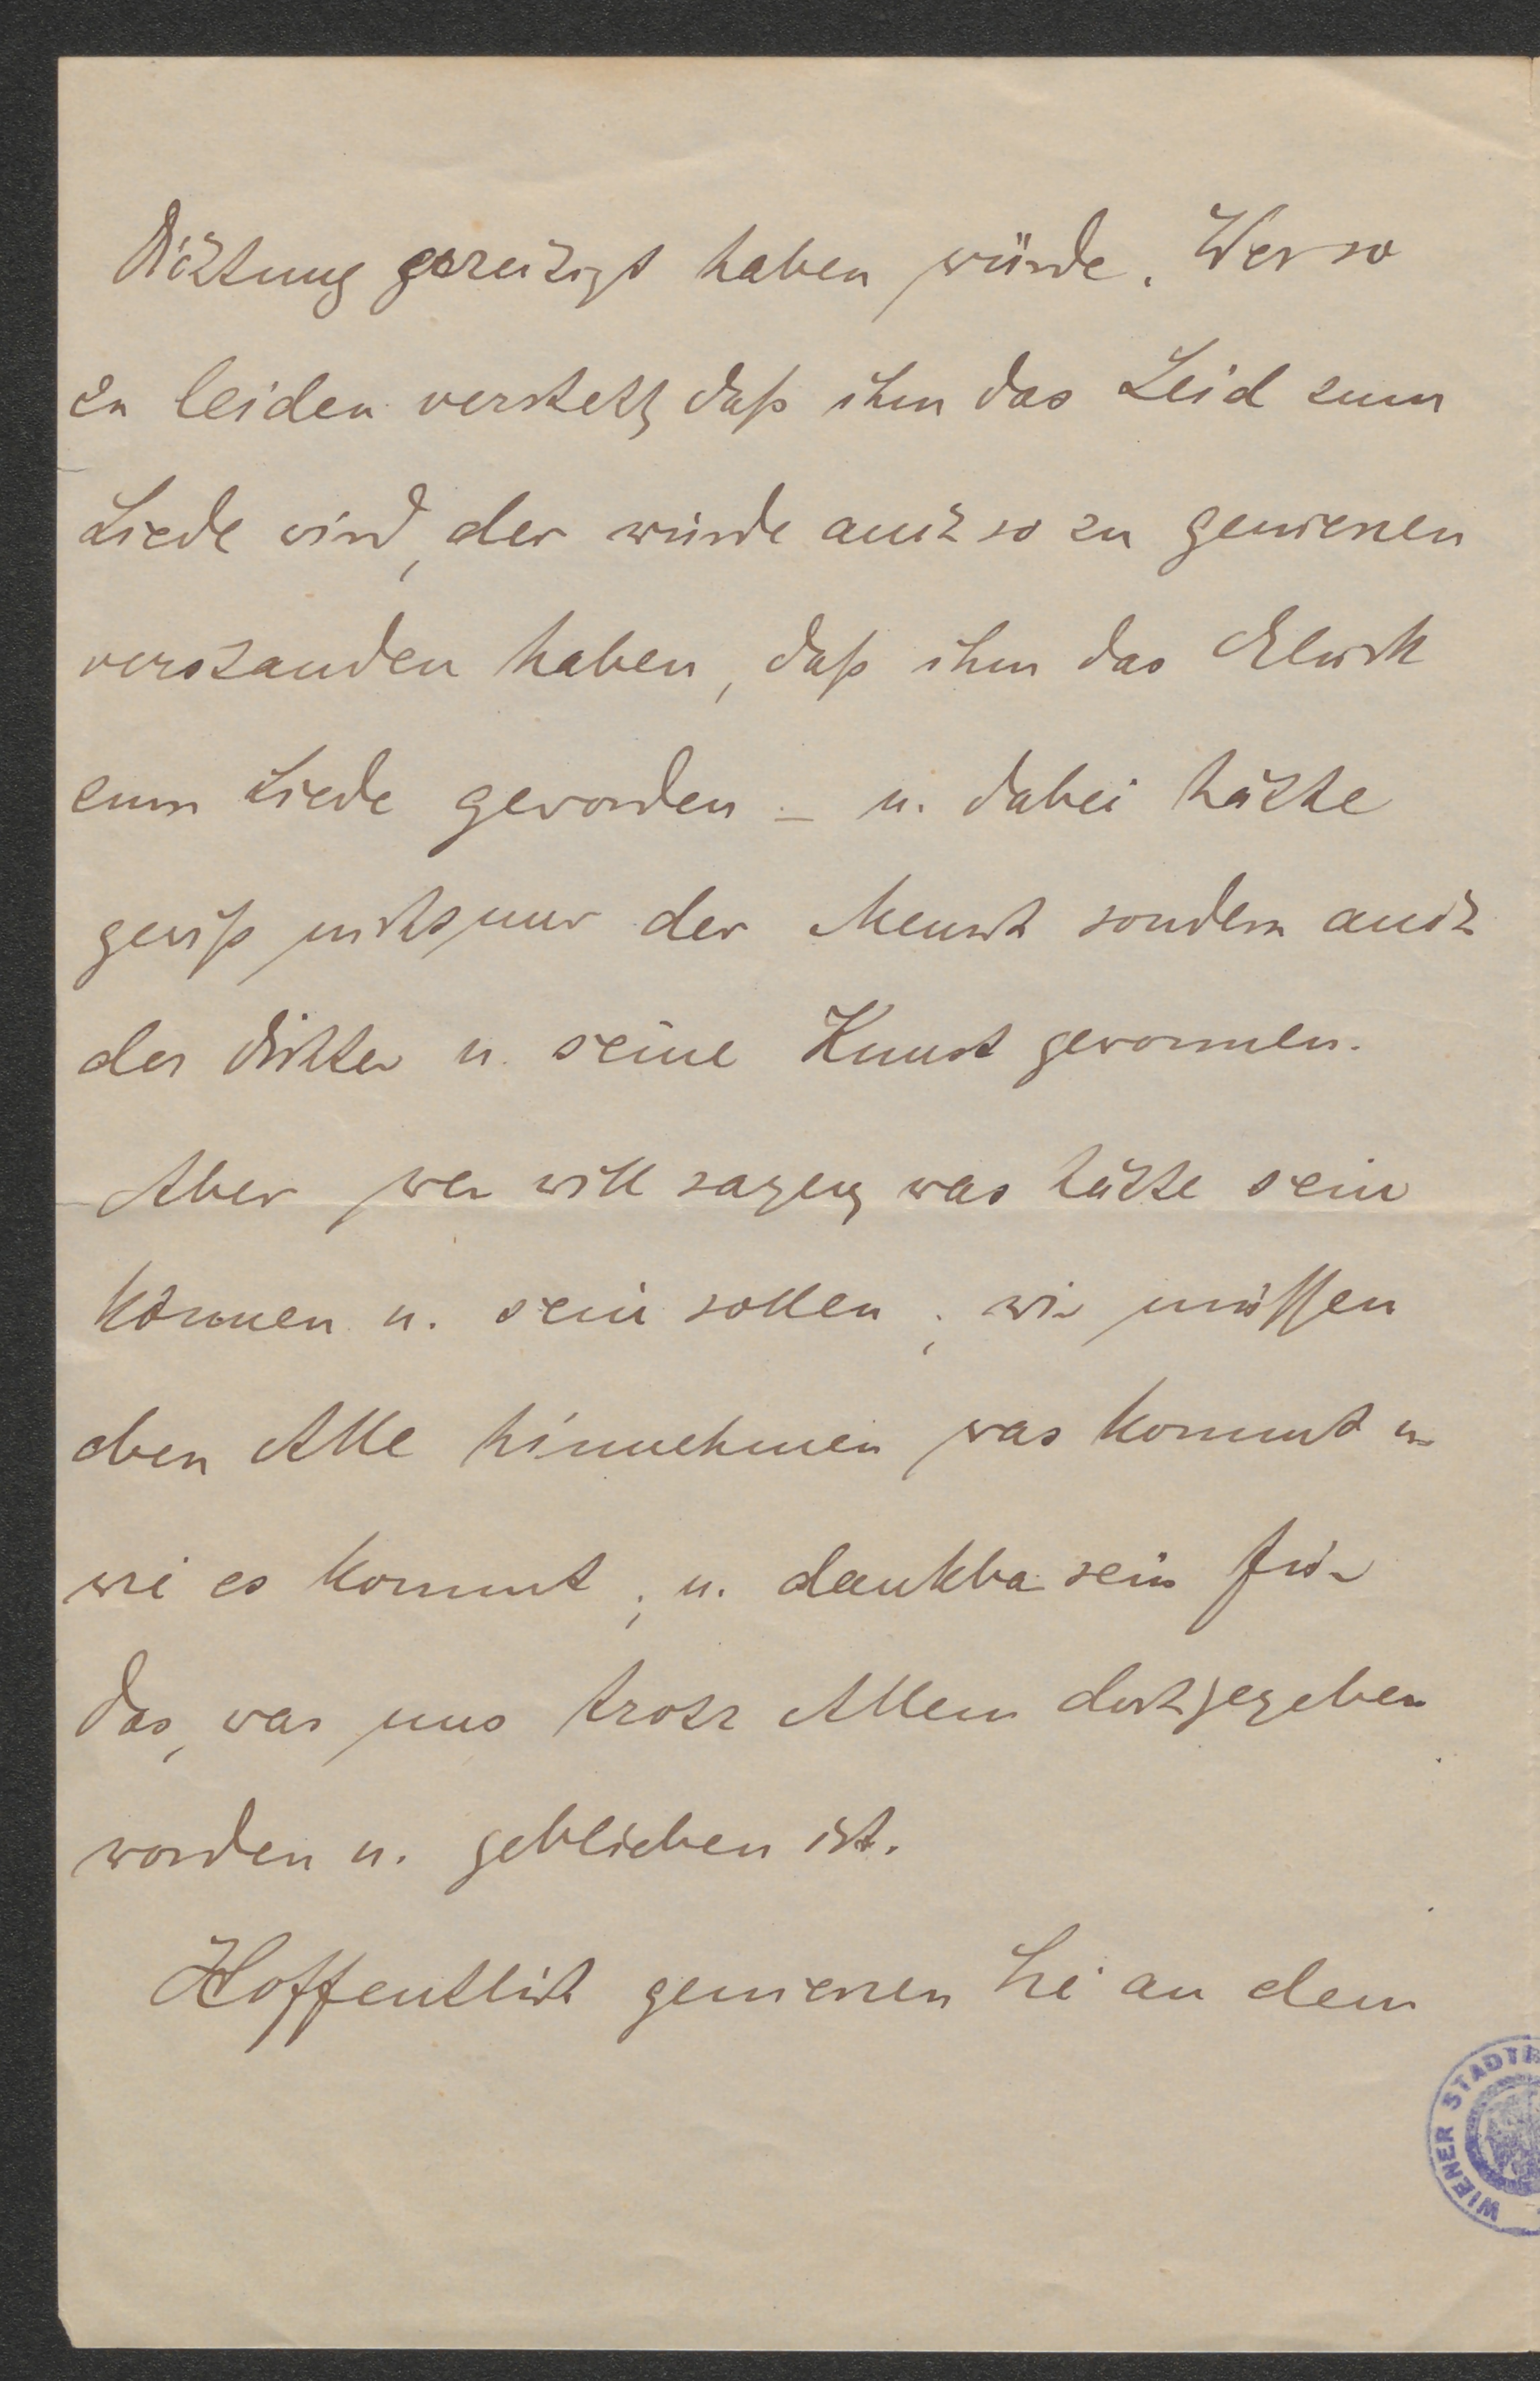 Dichtung gereicht haben würde. Wer so
zu leiden versteht, daß ihm das Leid zum
Liede wird, der würde auch so zu geniessen
verstanden haben, daß ihm das Glück
zum Liede geworden – u. dabei hätte
gewiß nicht nur der Mensch sondern auch
der Dichter u. seine Kunst gewonnen.
Aber wer will sagen, was hätte sein
können u. sein sollen; wir müssen
eben Alle hinnehmen was kommt u.
wie es kommt; u. dankbar sein für
das, was uns trotz Allem doch gegeben
worden u. geblieben ist.
Hoffentlich geniessen Sie an dem
WIENER STADTB